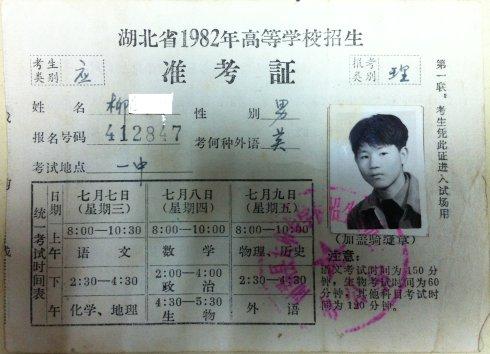 湖北省1982年高等学校招生
考生类别 应
准考证
报考类别 理
姓名 柳
性别 男
报名号码 412847
考何种外语 英
考试地点 一中
第一联：考生凭此证进入试场用
(加盖骑缝章)
统一考试时间表
日期 七月七日(星期三) 七月八日(星期四) 七月九日(星期五)
上午 8:00—10:30 8:00—10:00 8:00—10:00
语文 数学 物理、历史
下午 2:30—4:30 2:00—4:00 2:30—4:30
政治
4:30—5:30
化学、地理 生物 外语
注意：
语文考试时间为150分
钟，生物考试时间为60
分钟，其他科目考试时
间为120分钟。